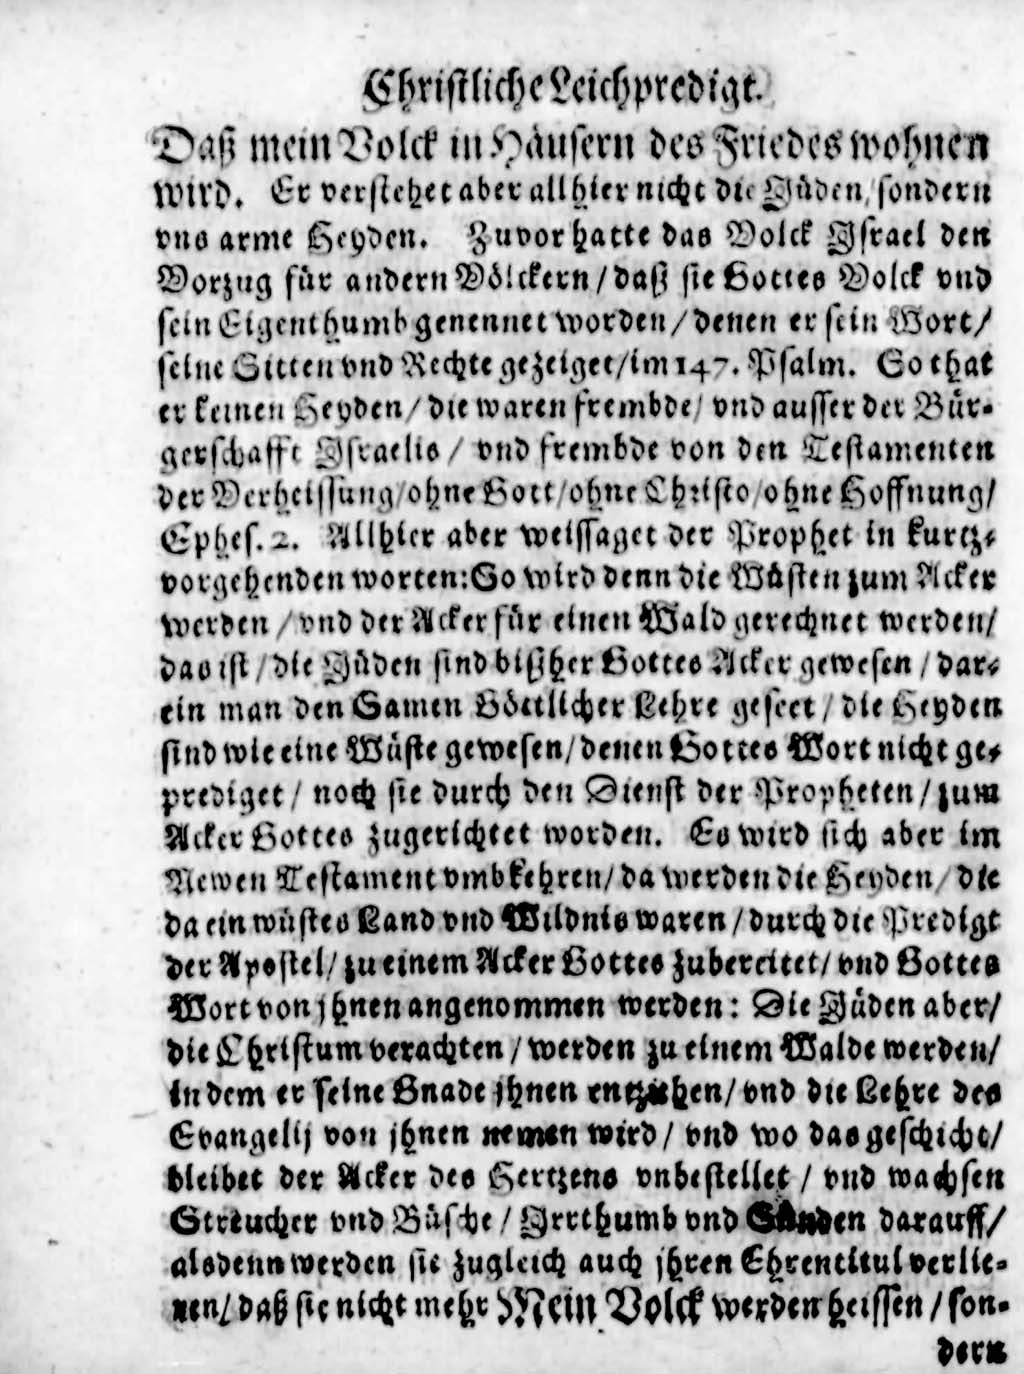 Christliche Leichpredigt.
Daß mein Volck in Häusern des Friedes wohnen
wird. Er verstehet aber allhier nicht die Jüden/ sondern
vns arme Heyden. Zuvor hatte das Volck Israel den
Vorzug für andern Völckern/ daß sie Gottes Volck vnd
sein Eigenthumb genennet worden/ denen er sein Wort/
seine Sitten vnd Rechte gezeiget/ im 147. Psalm. So that
er keinen Heyden/ die waren frembde/ vnd ausser der Bür-
gerschafft Israelis/ vnd frembde von den Testamenten
der Verheissung/ ohne Gott/ ohne Christo/ ohne Hoffnung/
Ephes. 2. Allhier aber weissaget der Prophet in kurtz-
vorgehenden worten: So wird denn die Wüsten zum Acker
werden/ vnd der Acker für einen Wald gerechnet werden/
das ist/ die Jüden sind bißher Gottes Acker gewesen/ dar-
ein man den Samen Göttlicher Lehre geseet/ die Heyden
sind wie eine Wüste gewesen/ denen Gottes Wort nicht ge-
prediget/ noch sie durch den Dienst der Propheten/ zum
Acker Gottes zugerichtet worden. Es wird sich aber im
Newen Testament vmbkehren/ da werden die Heyden/ die
da ein wüstes Land vnd Wildnis waren/ durch die Predigt
der Apostel/ zu einem Acker Gottes zubereitet/ vnd Gottes
Wort von jhnen angenommen werden: Die Jüden aber/
die Christum verachten/ werden zu einem Walde werden/
in dem er seine Gnade jhnen entziehen/ vnd die Lehre des
Evangelij von jhnen nemen wird/ vnd wo das geschicht/
bleibet der Acker des Hertzens vnbestellet/ vnd wachsen
Streucher vnd Büsche/ Irrthumb vnd Sünden darauff/
alsdenn werden sie zugleich auch jhren Ehrentitul verlie-
ren/ daß sie nicht mehr Mein Volck werden heissen/ son-
dern